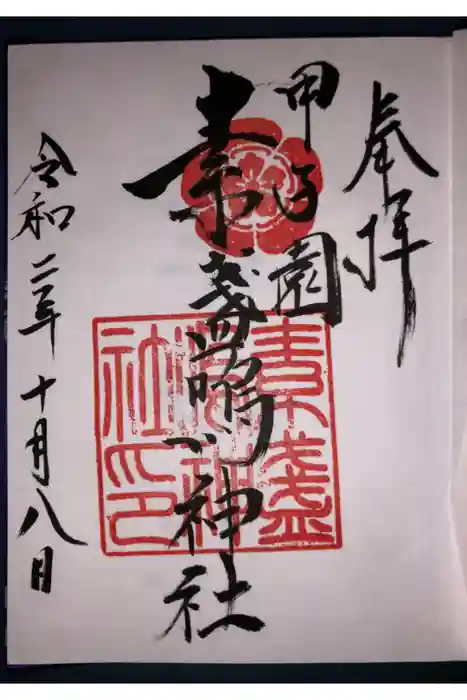 奉拝
甲子園
素盞嗚神社
令和二年十月八日
素盞
嗚神
社印